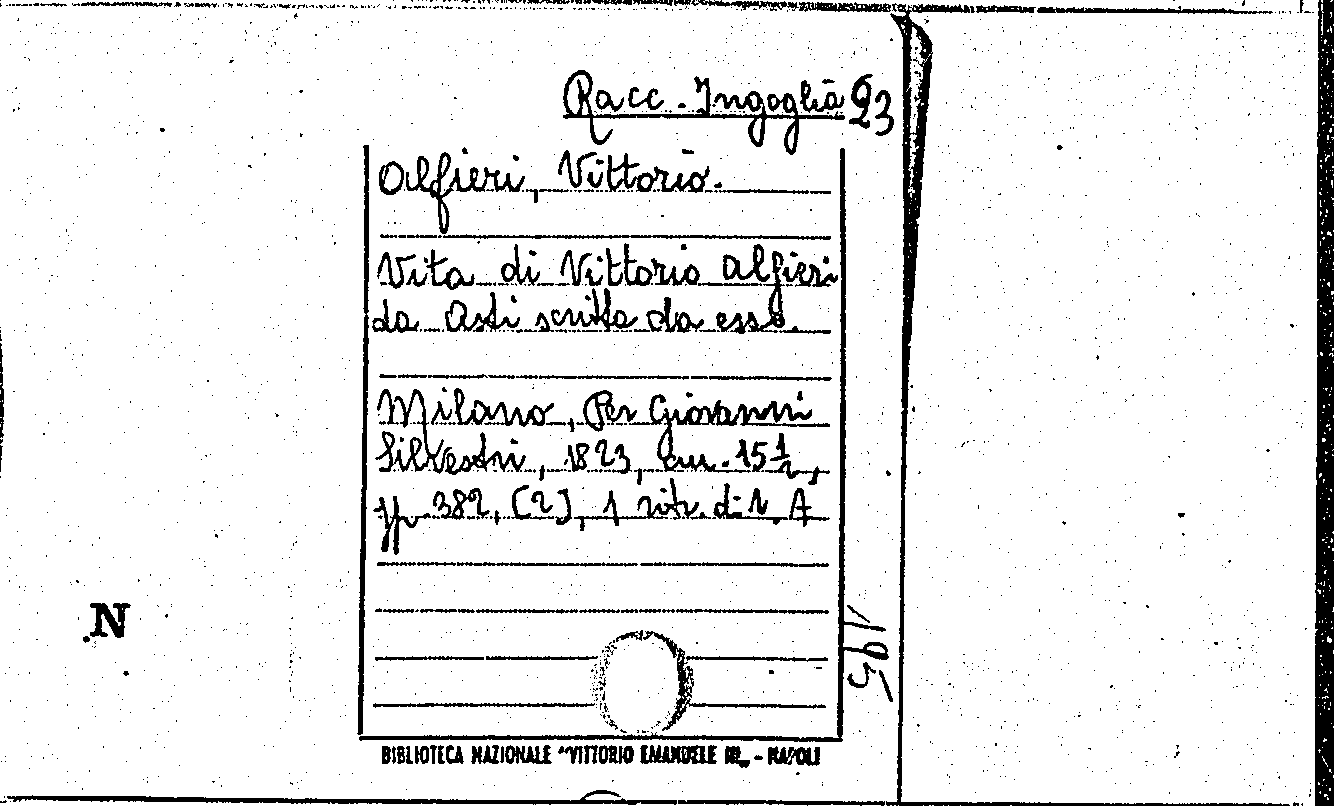 Racc. Ingoglia 93
Alfieri, Vittorio.
Vita di Vittorio Alfieri
da Asti scritta da esso.
Milano, Per Giovanni
Silvestri, 1823, cm. 15 1/2,
pp. 382, [2], 1 ritr. di A
N
195
BIBLIOTECA NAZIONALE "VITTORIO EMANUELE III„ - NAPOLI